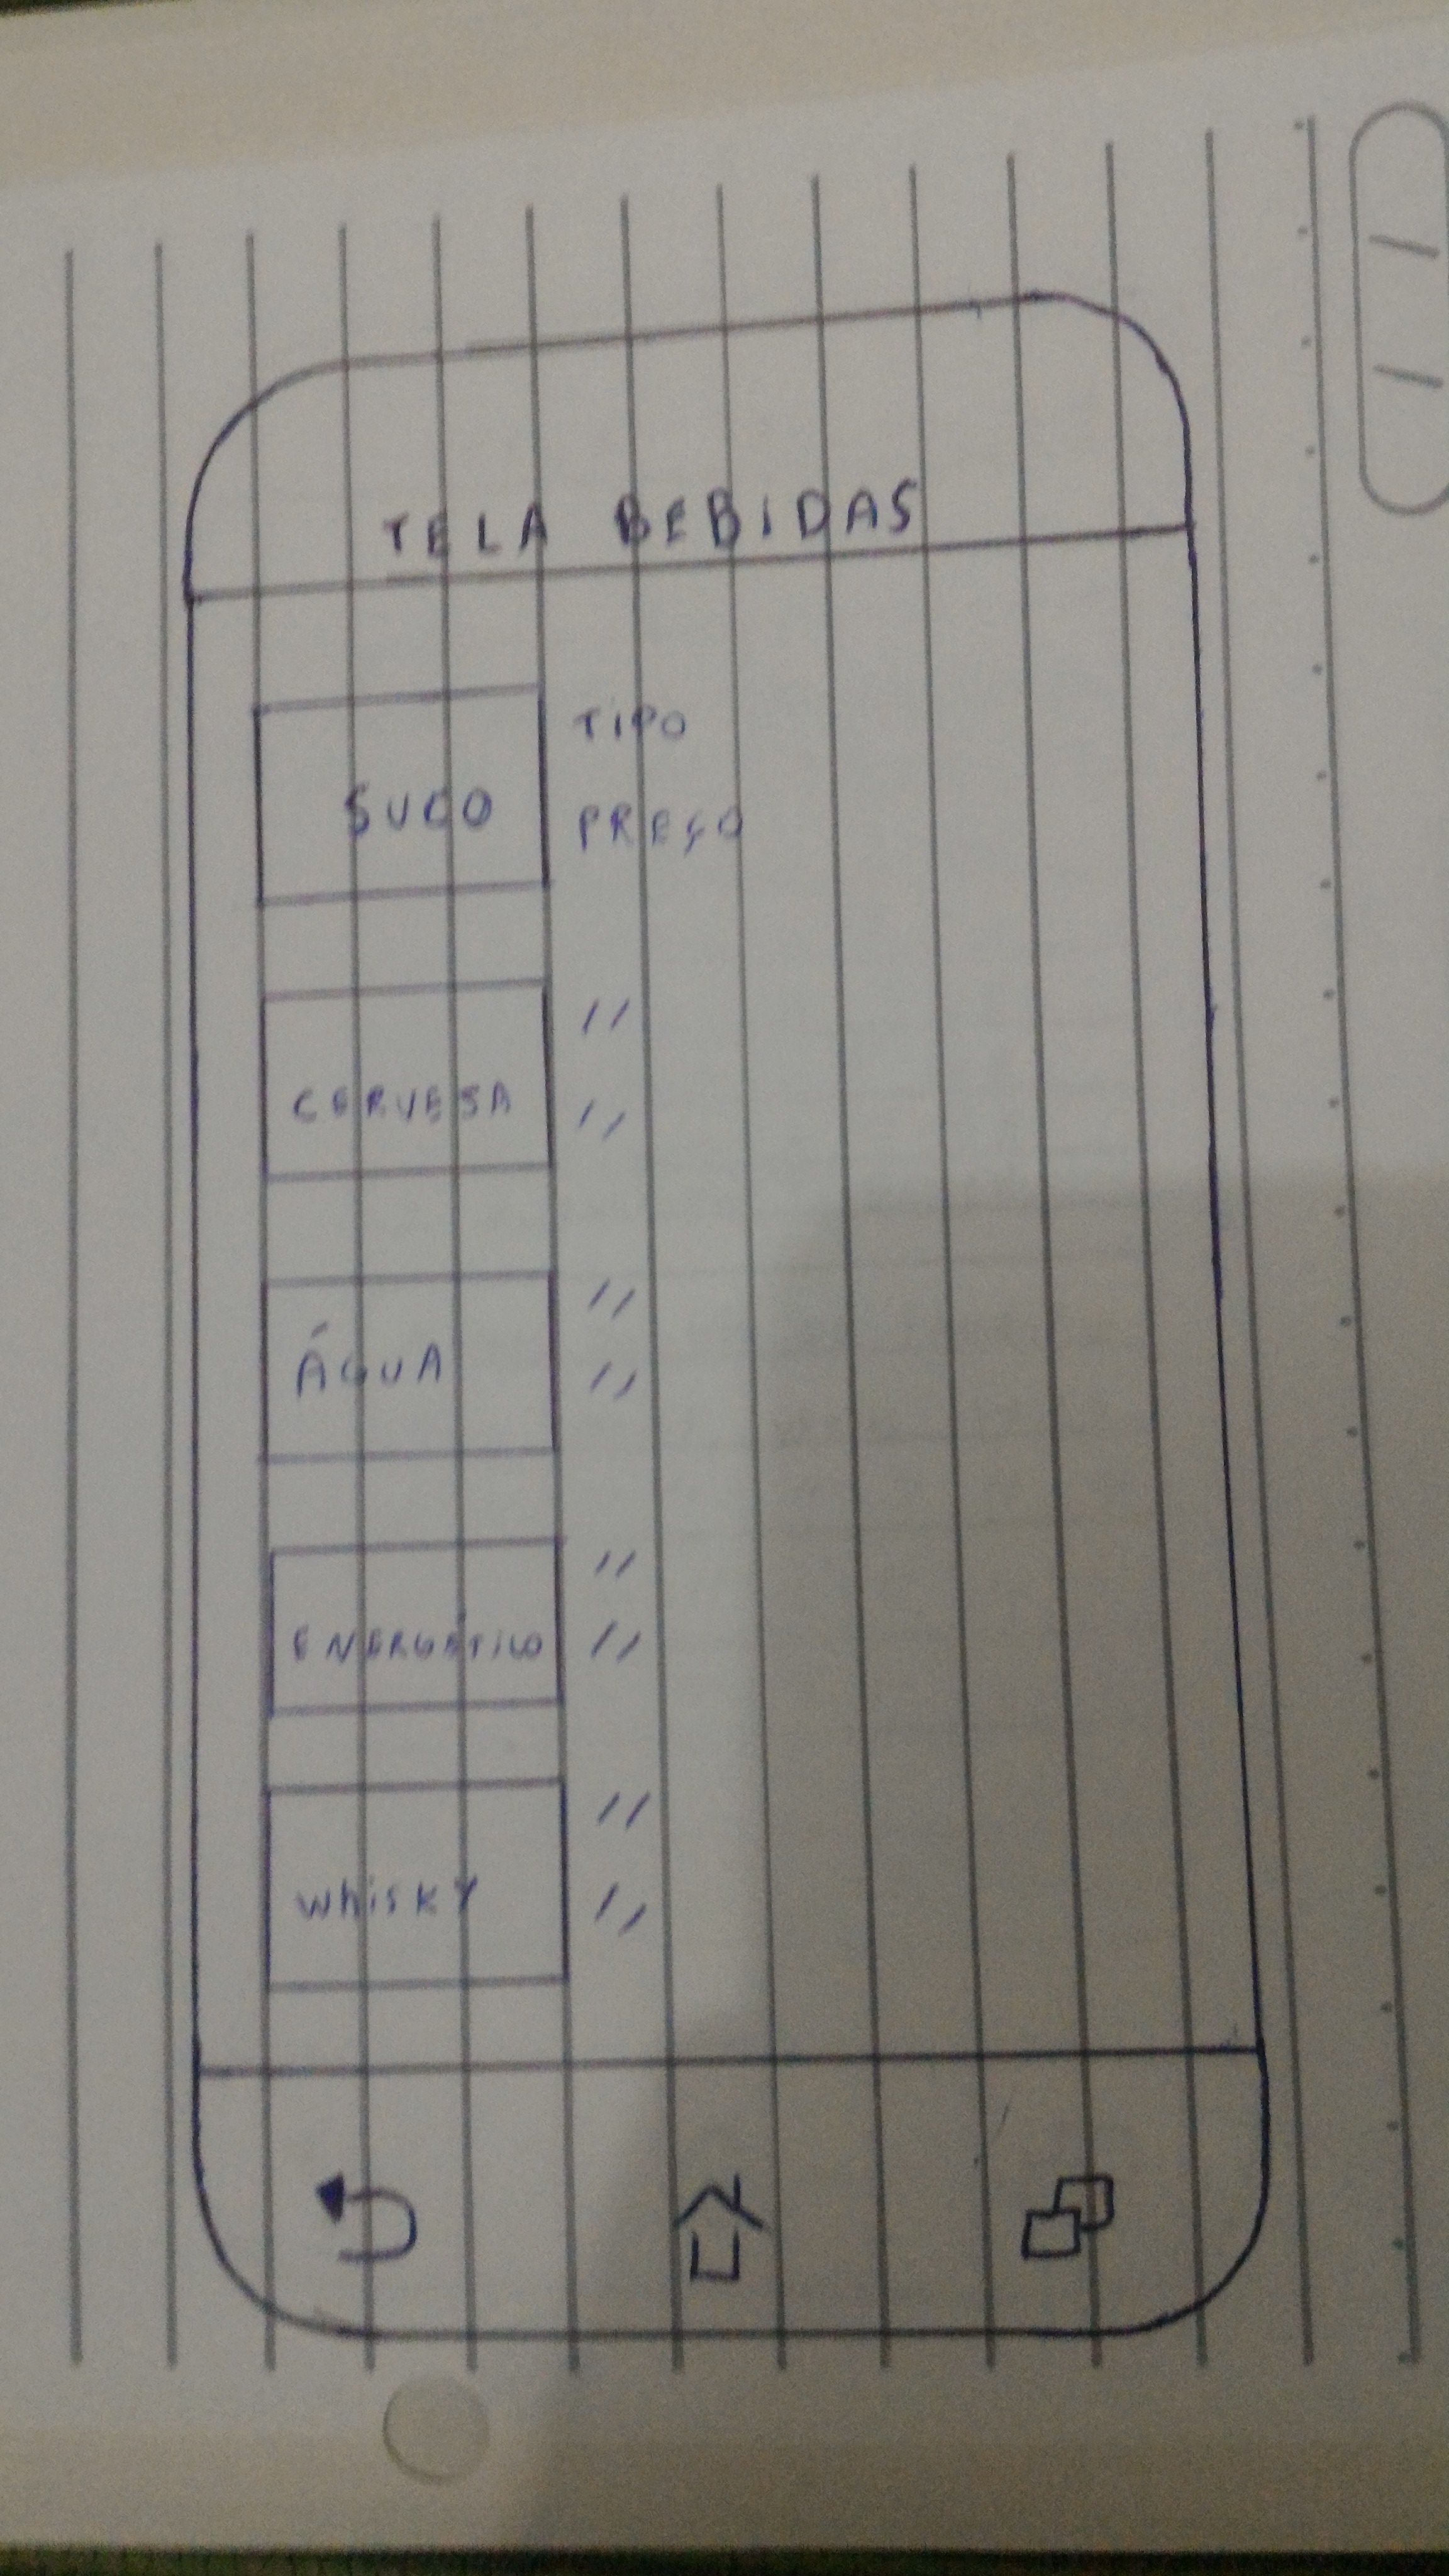 TELA BEBIDAS
SUCO
TIPO
PREÇO
CERVESA
"
"
ÁGUA
"
"
ENERGÉTICO
"
"
WhisKY
"
"